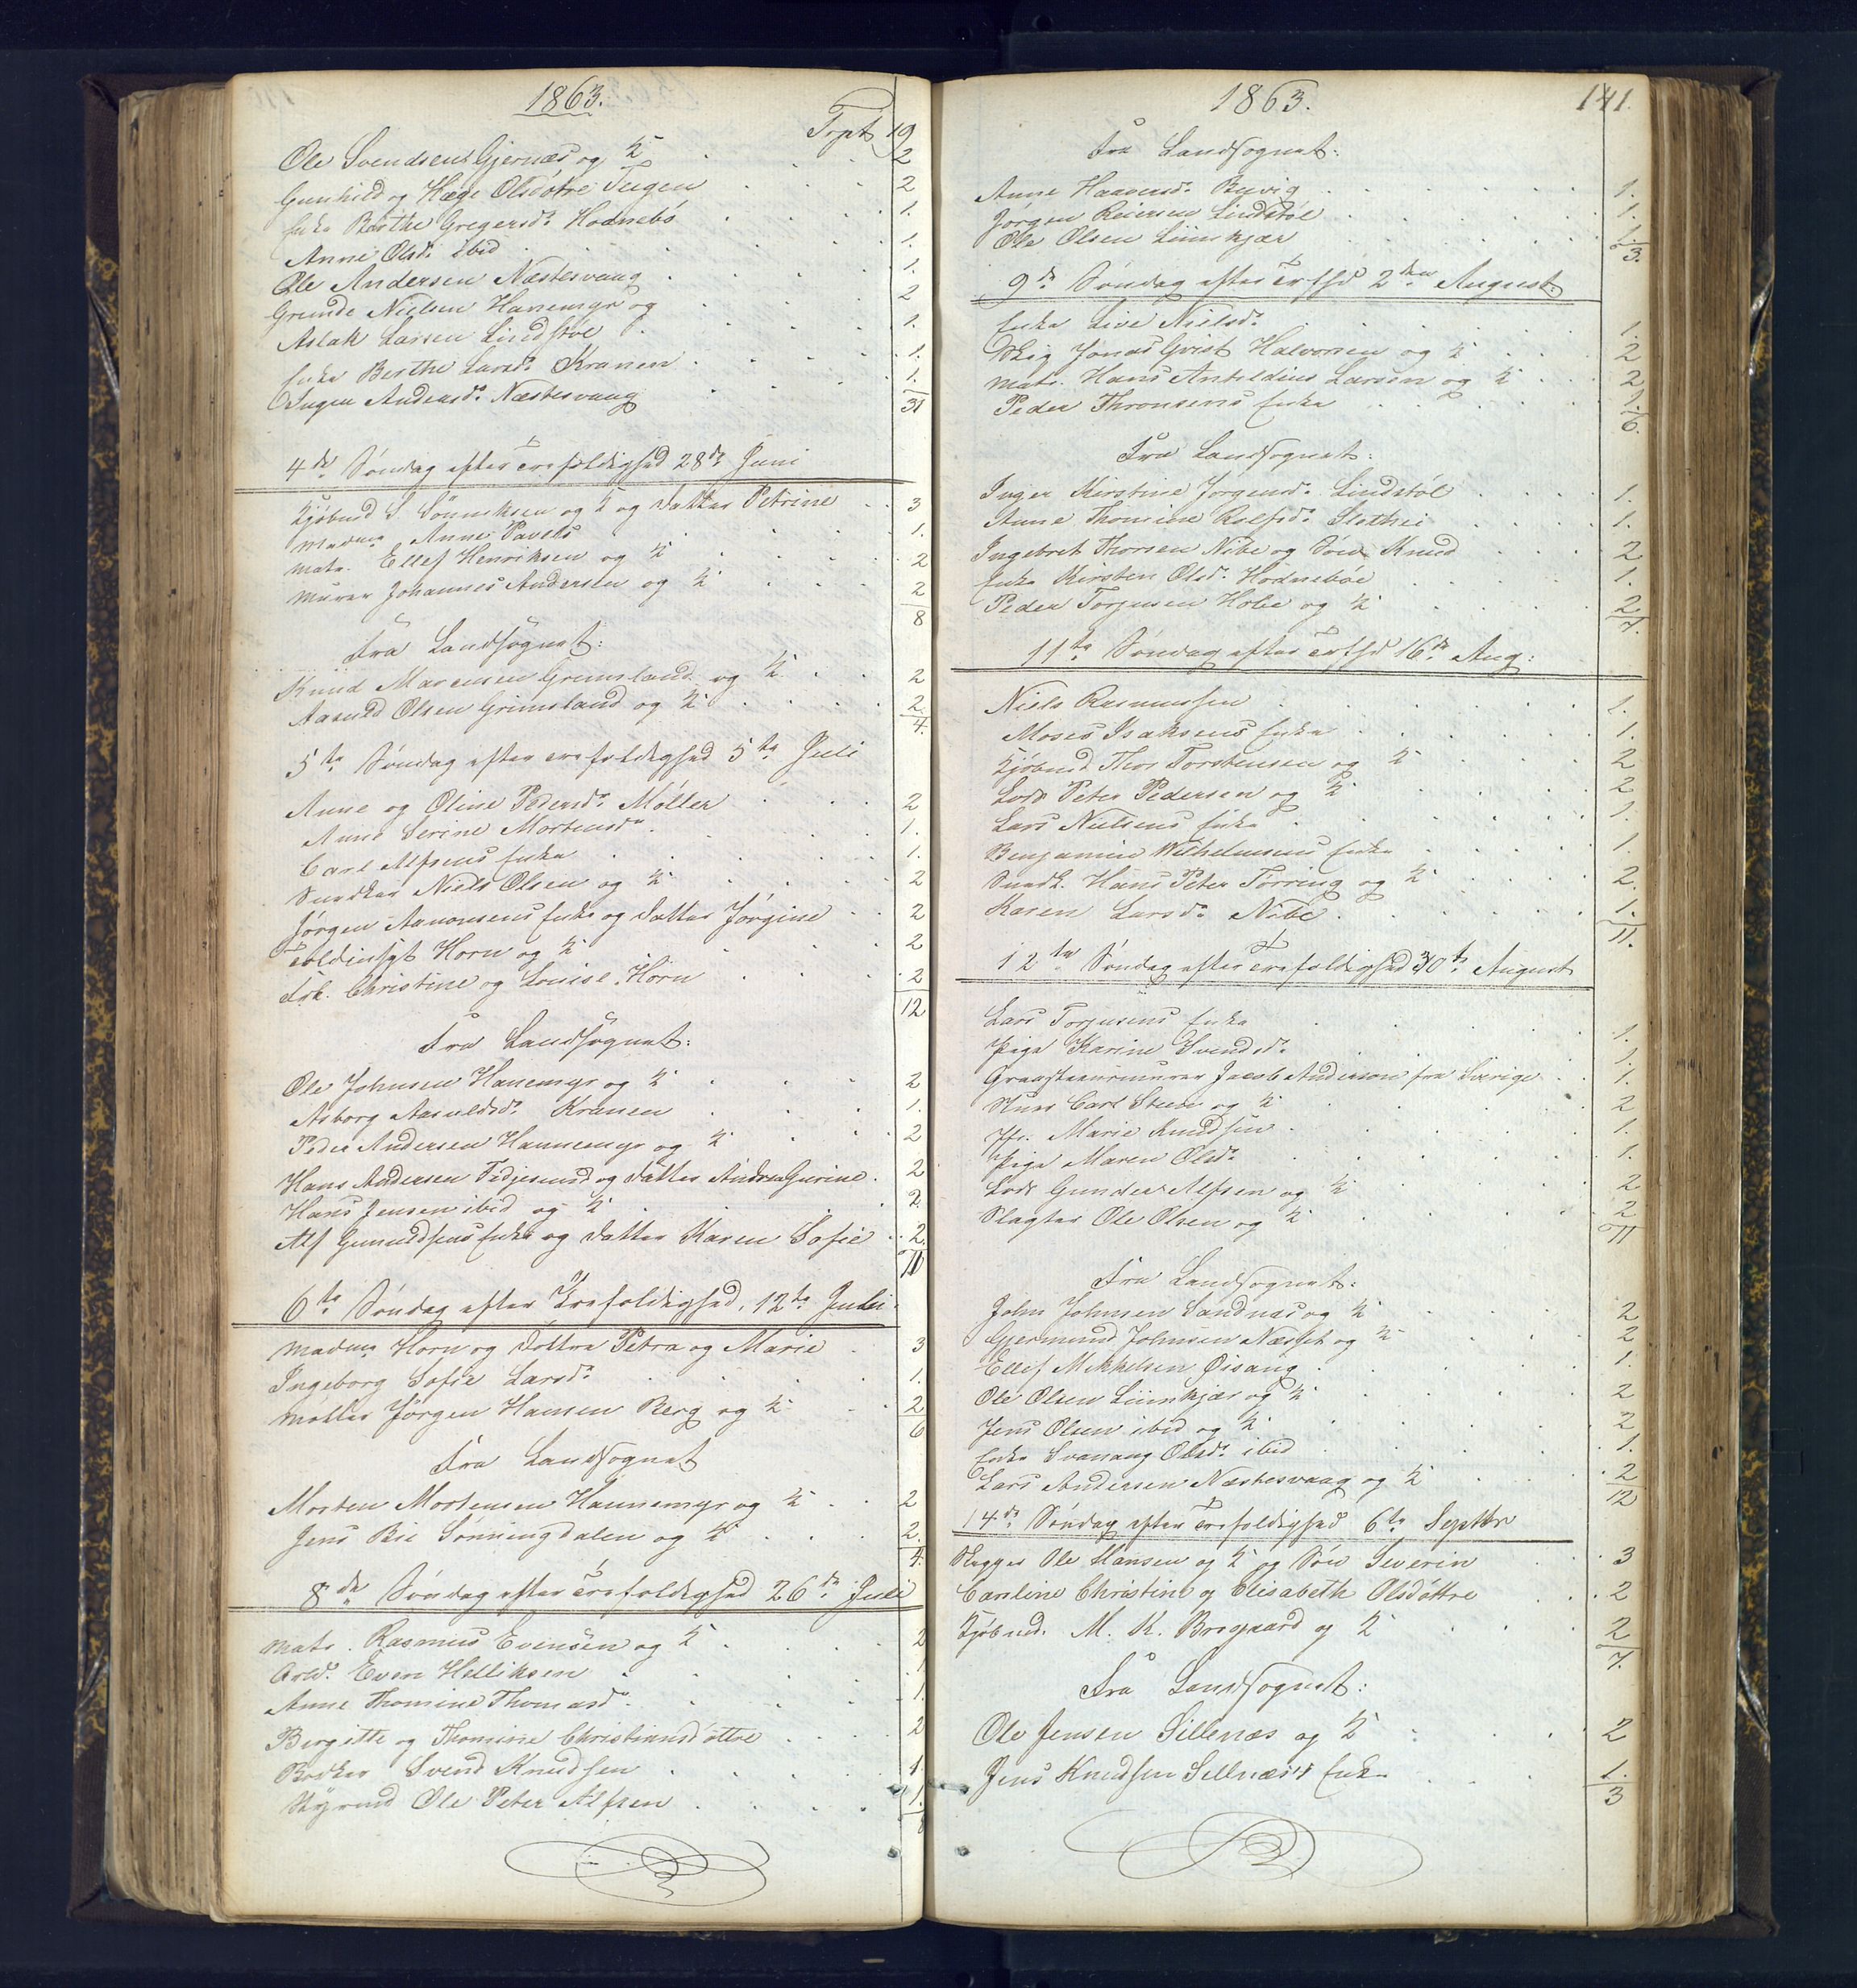 1863.
Trpt 19
Ole Svendsen Gjernæs og K 2
Gunhild og Hæge Olsdøtre Teigen 2
Enke Birthe Gregersd. Hodnebø 1.
Anne Olsd. ibid 1.
Ole Andersen Næstesvaag 1.
Grunde Nielsen Hanemyr og 2
Aslak Larsen Lindstøl 1.
Enke Berthe Larsd. Kranen 1.
Ingen Andersd. Næstesvaag 1.
31
4de Søndag efter Trefoldighed 28de Juni
Kjøbmd S. Sønniksen og K og Datter Petrine 3
Madme Anne Pavels 1.
Matr. Ellef Henriksen og K 2
Murer Johannes Andersen og K 2
8
Fra Landsognet:
Knud Marensen Grimsland og K 2
Aanuld Olsen Grimsland og K 2
4.
5te Søndag efter Trefoldighed 5te Juli
Anne og Oline Pedersd. Møller 2
Anne Serine Mortensd. 1.
Carl Alfsens Enke 1.
Snedker Niels Olsen og K 2
Jørgen Aanonsens Enke og Datter Jørgine 2
Toldinsp Horn og K 2
Frk. Christine og Louise Horn 2
12
Fra Landsognet:
Ole Johnsen Hanemyr og K 2
Asborg Aasuldsd. Kranen 1.
Peder Andersen Hannemyr og K 2
Hans Andersen Fidjesund og Datter Andrea Gurine. 2
Hans Jensen ibid og K 2
Alf Gunuldsens Enke og Datter Karen Sofie 2
11
6te Søndag efter Trefoldighed, 12te Juli
Madme Horn og Døttre Petra og Marie 3
Ingeborg Sofie Larsd. 1.
Møller Jørgen Hansen Berg og K 2
6
Fra Landsognet
Morten Mortensen Hannemyr og K 2
Jens Bie Sønningdalen og K 2.
4.
8de Søndag efter Trefoldighed 26de Juli
Matr. Rasmus Evensen og K 2
Arbd. Even Helliksen 1
Anne Thomine Thomasd. 1.
Birgitte og Thomine Christiansdøttre 2
Bødker Svend Knudsen 1.
Styrmd Ole Peter Alfsen 1.
8
1863. 141.
Fra Landsognet:
Anne Haaversd. Buvig 1.
Jørgen Reiersen Lindstøl 1.
Ole Olsen Liimkjær 1.
3.
9de Søndag efter Trefhd 2den August.
Enke Live Nielsd. 1.
Skig Jonas Qvist Halvorsen og K 2
Matr. Hans Antoldius Larsen og K 2
Peder Thronsens Enke 1.
6.
Fra Landsognet:
Inger Kirstine Jørgensd. Lindstøl 1.
Anne Thomine Rolfsd. Slethei 1.
Ingebret Thorsen Nibe og Søn Knud 2
Enke Kirsten Olsd. Hodnebøe 1.
Peder Torjusen Holie og K 2
7.
11te Søndag efter Trefhd 16de Aug:
Niels Rasmussen 1.
Moses Isaksens Enke 1.
Kjøbmd Thor Torstensen og K 2
Lods Peter Pedersen og K 2
Lars Nielsens Enke 1.
Benjamin Wilhelmsens Enke 1.
Snedk. Hans Peter Torring og K 2.
Karen Larsd. Nibe 1.
11.
12te Søndag efter Trefoldighed 30te August
Lars Torjusens Enke 1.
Pige Karine Svendsd. 1.
Graasteensmurer Jacob Anderson fra Sverige 1.
Skms Carl Steen og K 2
Jfr. Marie Knudsen 1.
Pige Maren Olsd. 1.
Lods Gunder Alfsen og K 2
Slagter Ole Olsen og K 2
11
Fra Landsognet:
John Johnsen Sandnæs og K 2
Gjermund Johnsen Næsset og K 2
Ellef Mikkelsen Øisang 1.
Ole Olsen Liimkjær og K 2
Jens Olsen ibid og K 2
Enke Svanaug Olsd. ibid 1.
Lars Andersen Næstesvaag og K 2
12
14de Søndag efter Trefoldighed 6te Septbr
Skipper Ole Hansen og K og Søn Severin 3
Caroline Christine og Elisabeth Olsdøttre 2
Kjøbmd. M. K. Brogaard og K 2
7.
Fra Landsognet:
Ole Jensen Sillenæs og K 2
Jens Knudsen Sellnæs's Enke 1.
3